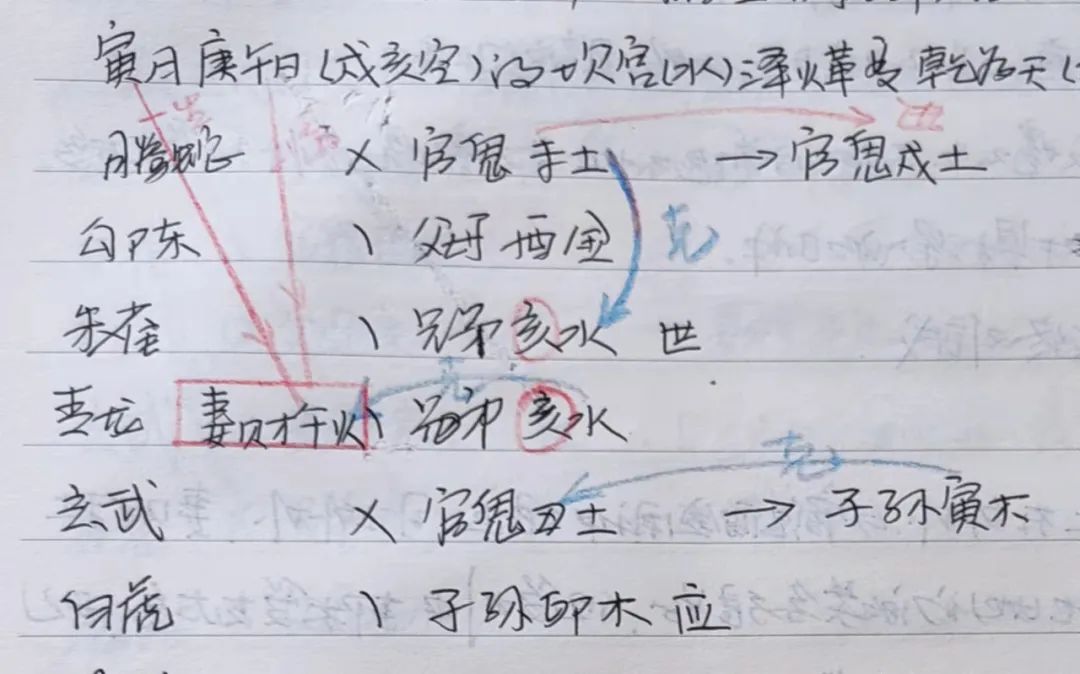 寅月庚午日(戌亥空)得坎宫(水)泽火革变乾为天(
生 临 进
螣蛇 X 官鬼 未土 → 官鬼戌土
勾陈 \ 父母 酉金 克
朱雀 \ 兄弟 亥水 世
克
青龙 妻财午火 \ 兄弟 亥水
克
玄武 X 官鬼丑土 → 子孙寅木
白虎 \ 子孙卯木 应